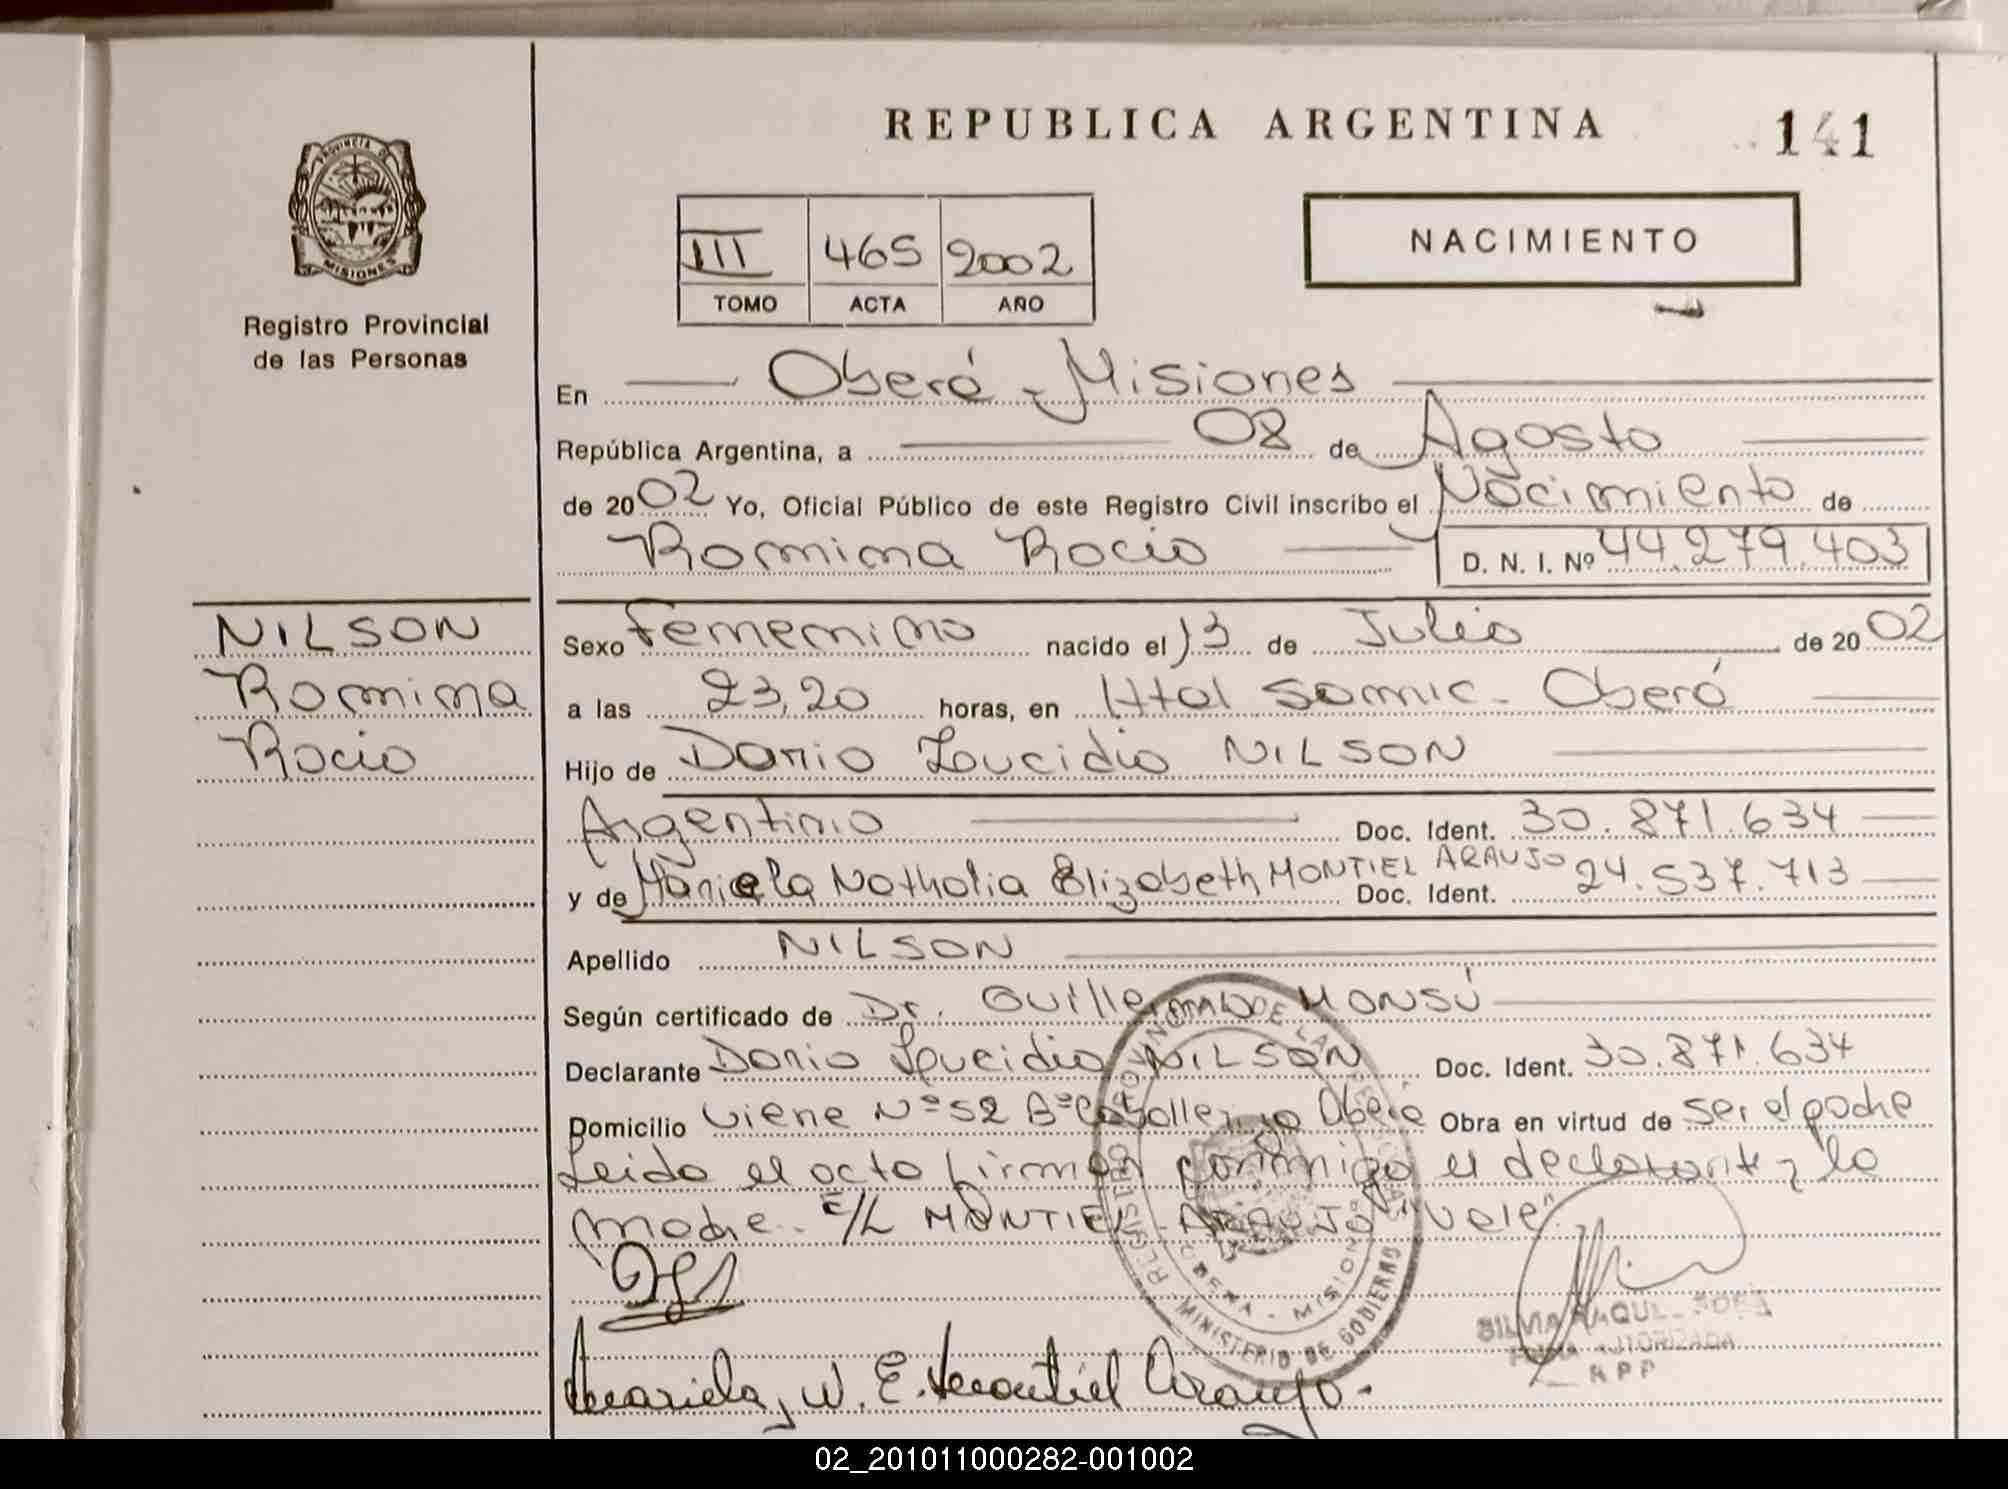 REPUBLICA ARGENTINA
141
PROVINCIA DE
MISIONES
Registro Provincial
de las Personas
III 465 2002
TOMO ACTA AÑO
NACIMIENTO
En Oberá - Misiones
República Argentina, a 08 de Agosto
de 2002 Yo, Oficial Público de este Registro Civil inscribo el Nacimiento de
Romina Rocio D. N. I. Nº 44.279.403
NILSON
Romina
Rocio
Sexo Femenino nacido el 13 de Julio de 2002
a las 23,20 horas, en Htal Samic - Oberá
Hijo de Dario Loucidio NILSON
Argentino Doc. Ident. 30.871.634
y de Mariela Nathalia Elizabeth MONTIEL ARAUJO Doc. Ident. 24.537.713
Apellido NILSON
Según certificado de Dr. Guillermo MONSÚ
Declarante Dario Loucidio NILSON Doc. Ident. 30.871.634
Domicilio Viene Nº 52 Bº Caballeriza Oberá Obra en virtud de ser el padre
Leido el acta firman conmigo el declarante y la
madre. E/L MONTIEL ARAUJO "Vale"
REGISTRO PROVINCIAL DE LAS PERSONAS
OBERA - MISIONES
MINISTERIO DE GOBIERNO
SILVIA RAQUEL SOSA
FIRMA AUTORIZADA
RPP
Mariela N. E. Montiel Araujo.
02_201011000282-001002